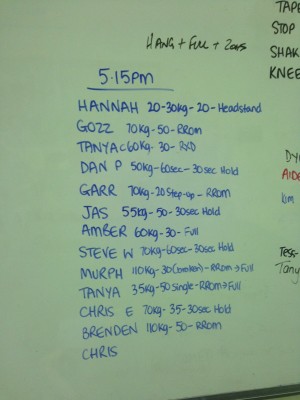 HANG + FULL + 200s
5:15pm
HANNAH 20-30kg-20-Headstand
GOZZ 70kg-50-RROM
TANYA C 60kg-30-RXD
DAN P 50kg-60sec-30sec Hold
GARR 70kg-20 Step-up-RROM
JAS 55kg-50-30sec Hold
AMBER 60kg-30-Full
STEVE W 70kg-60sec-30sec Hold
MURPH 110kg-30(broken)-RROM→Full
TANYA 35kg-50 Single-RROM→Full
CHRIS E 70kg-35-30sec Hold
BRENDEN 110kg-50-RROM
CHRIS
TAPE
STOP
SHAK
KNEE
DY
AIDE
bm
Tess-
Tany